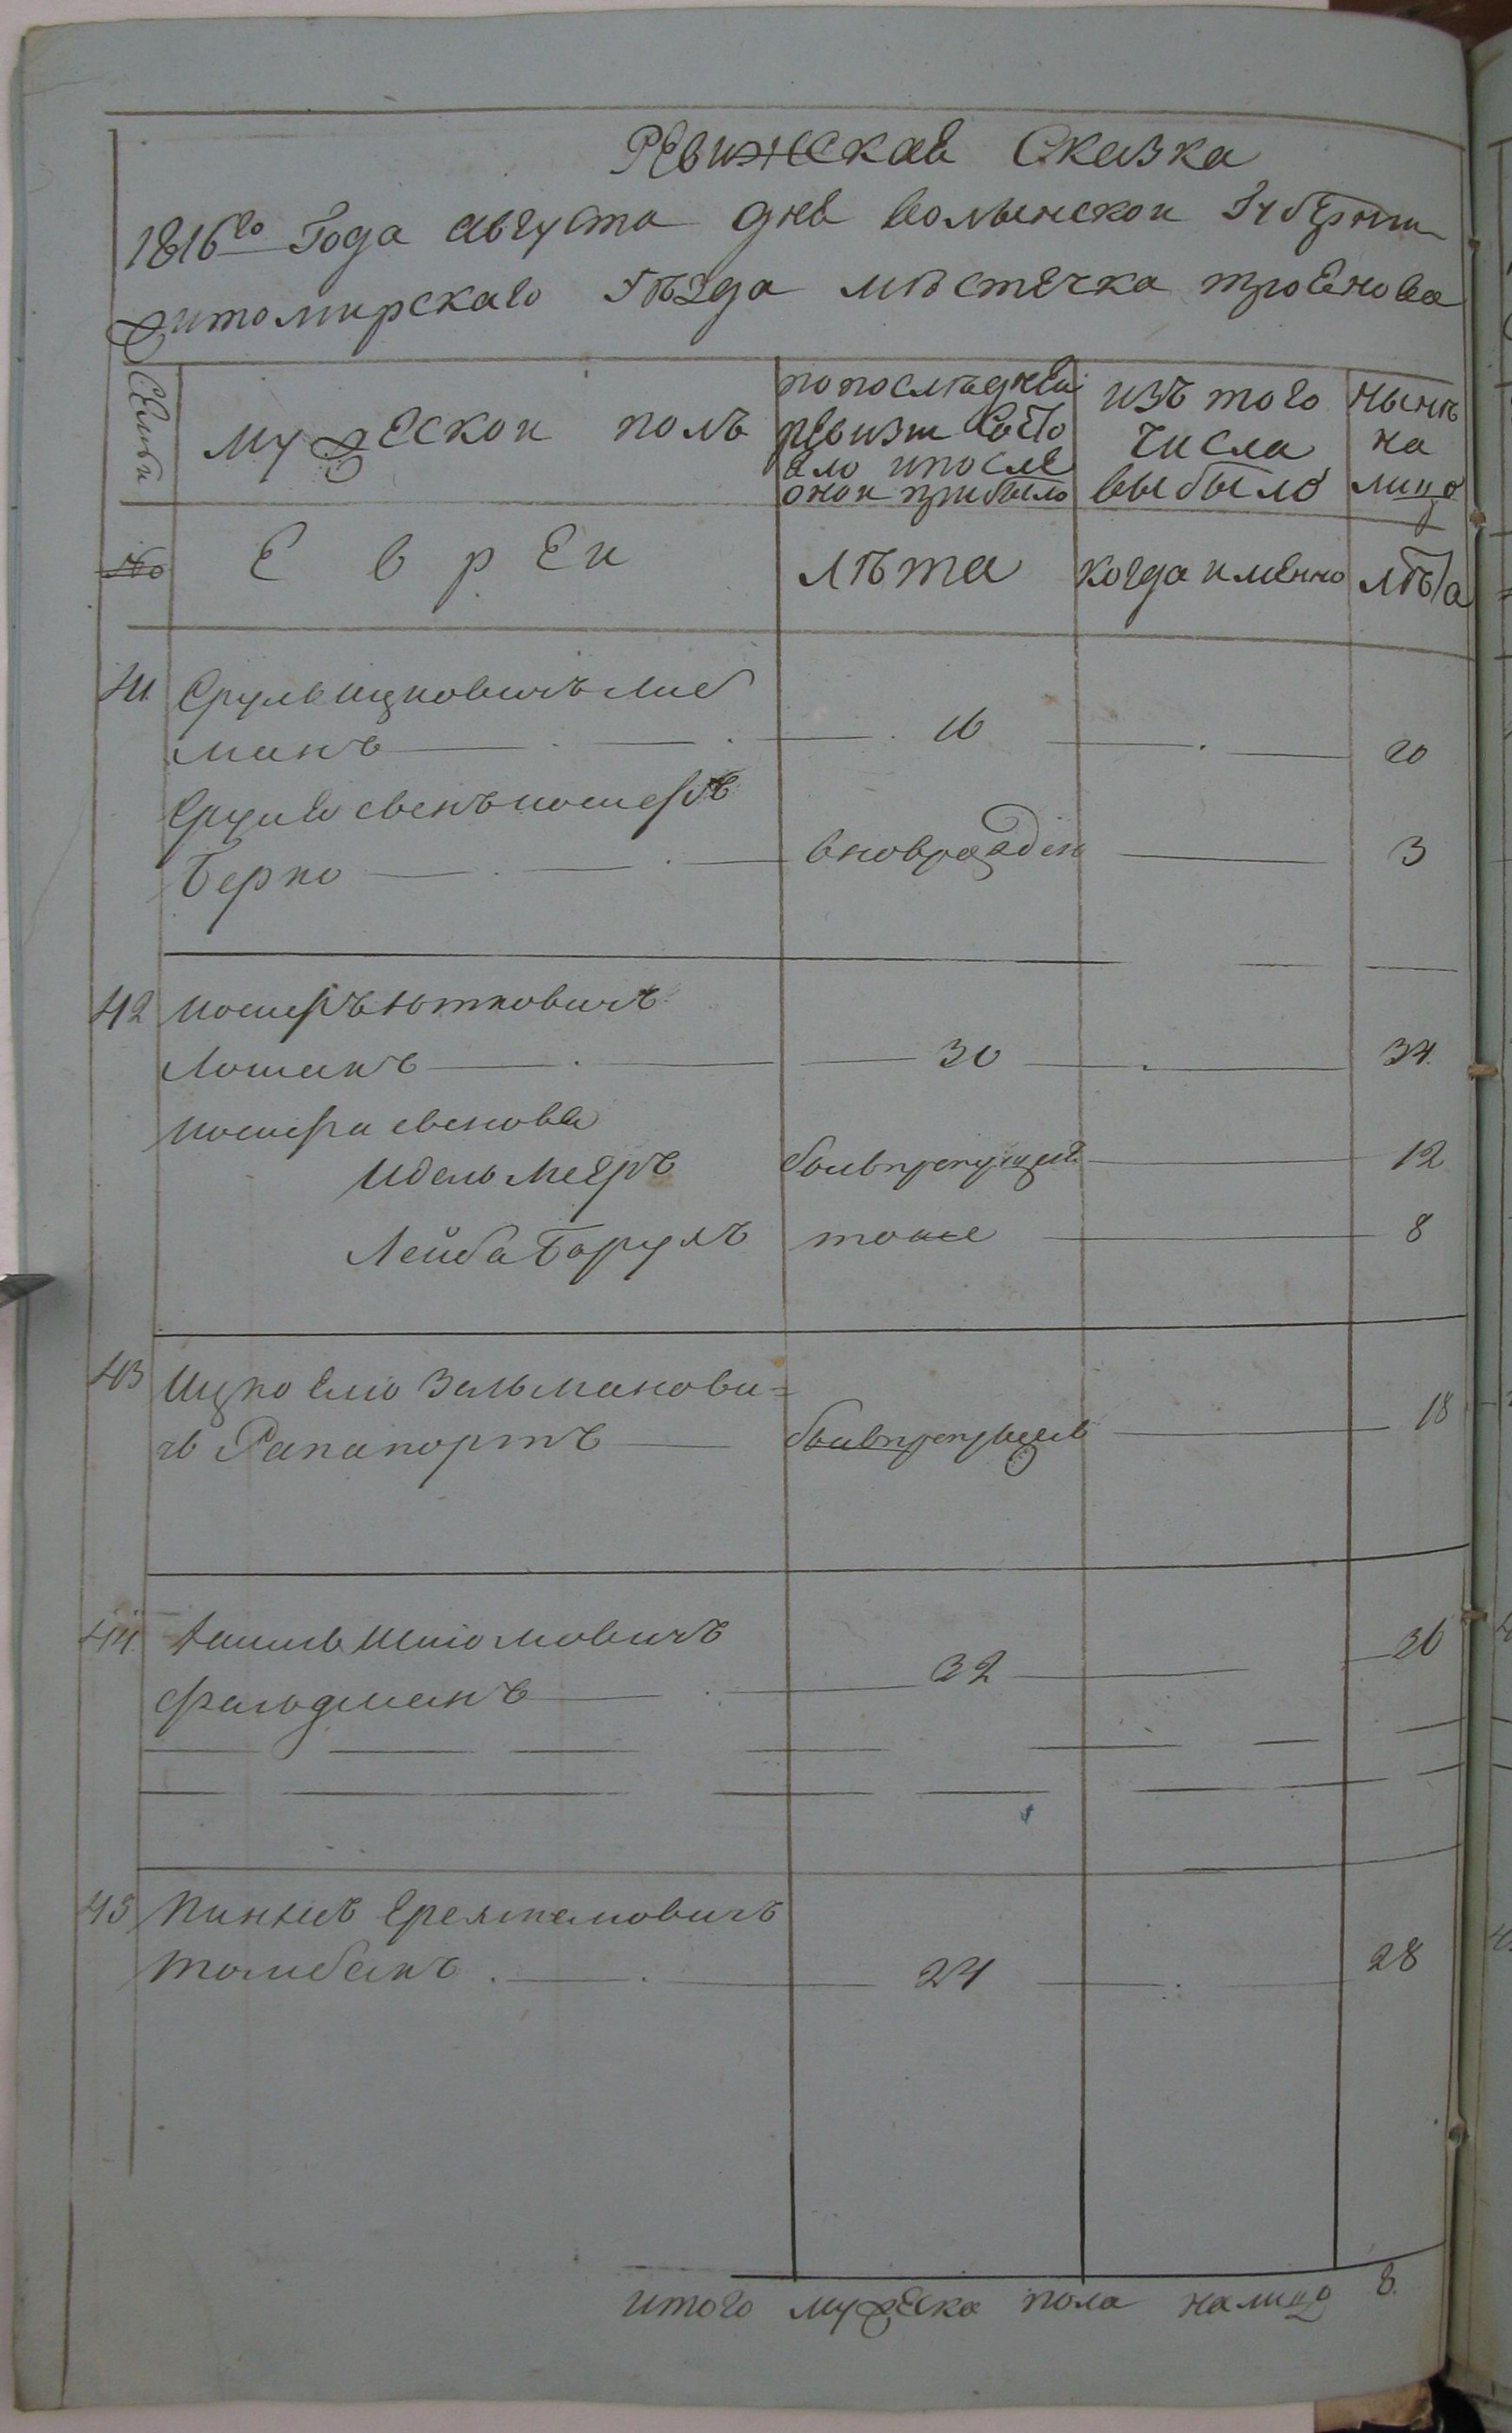 Ревижская Сказка
1816го Года августа дня волынской Губернии
житомирскаго уѣзда мѣстечка троянова
Семьи
мужескои полъ
попослѣдней
ревизии состо
яло ипосле
онои прибыло
изъ того
числа
выбыло
нынѣ
на
лицо
№
Евреи
лѣта
когда имянно
лѣта
41 Сруль ицковичъ Либ
манъ 16 20
Сруля сынъ иосифъ
Берко вновьрожден 3
42 иосифъ ютковичъ
Лошакъ 30 34
иосифа сыновья
Идель мееръ бывпропущен 12
Лейба Борухъ тоже 8
43 Ицко Елио Зельманови=
чъ Рапапортъ бывпропущен 18
44 Шліомовичъ
Фальдманъ 32 36
45 Пинхасъ
28
24
итого мужеска пола налицо 8